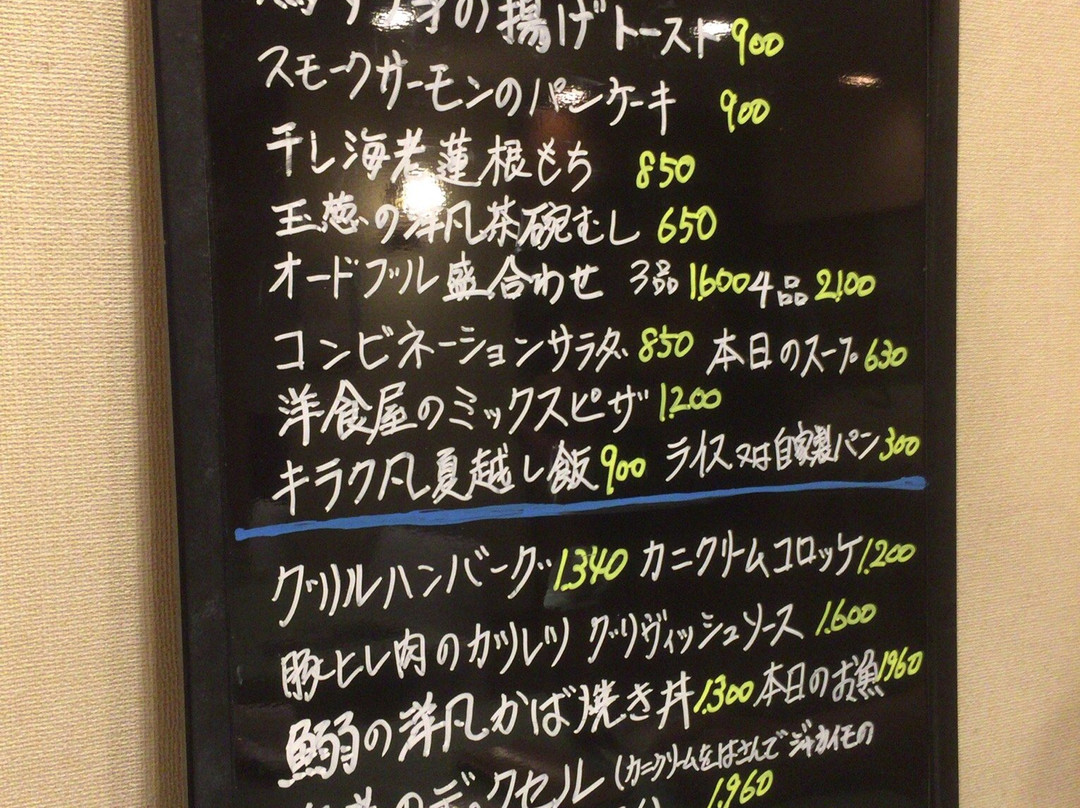 の揚げトースト 900
スモークサーモンのパンケーキ 900
干し海老蓮根もち 850
玉葱の洋風茶碗むし 650
オードブル盛合わせ 3品1.600 4品2.100
コンビネーションサラダ 850 本日のスープ 630
洋食屋のミックスピザ 1.200
キラク風夏越し飯 900 ライス又は自家製パン 300
グリルハンバーグ 1.340 カニクリームコロッケ 1.200
豚ヒレ肉のカツレツ グリヴィッシュソース 1.600
鰯の洋風かば焼き丼 1.300 本日のお魚 1960
のデュクセル (カニクリームをはさんで ジャガイモの
1.960